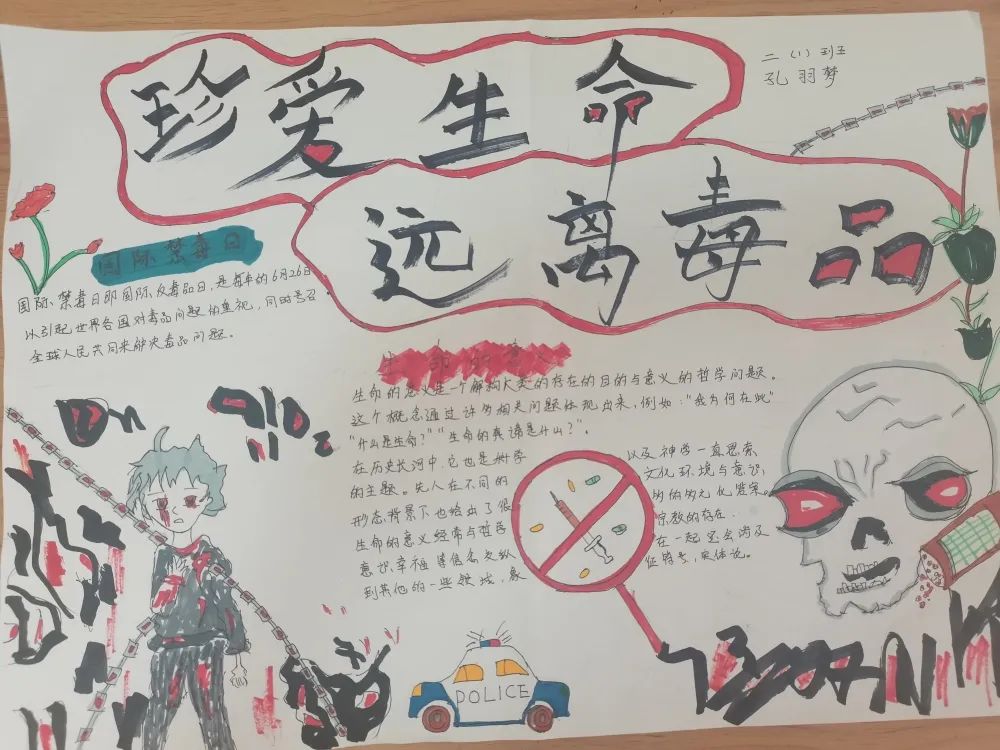 珍爱生命
二（1）班
孔羽梦
远离毒品
国际禁毒日
国际禁毒日即国际反毒品日，是每年的6月26日，
以引起世界各国对毒品问题的重视，同时号召
全球人民共同来解决毒品问题。
生命的意义
生命的意义是一个解构人类的存在的目的与意义的哲学问题。
这个概念通过许多相关问题体现出来，例如："我为何在此"
"什么是生命？""生命的真谛是什么？"。
在历史长河中，它也是
的主题。先人在不同的
形态背景下也给出了很
生命的意义经常与哲学
意识幸福
到其他的一些领域，象
以及神学一直思索
文化环境与意识，
的多元化答案。
宗教的存在
在一起还会涉及
征符号，实体论。
POLICE